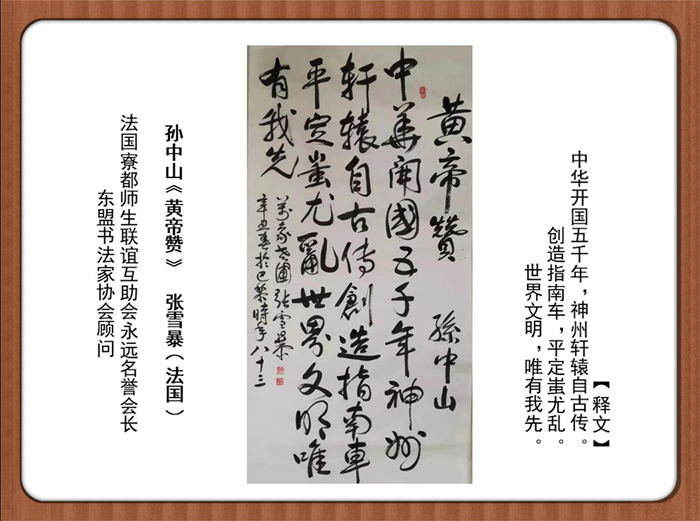 【释文】
中华开国五千年，神州轩辕自古传。
创造指南车，平定蚩尤乱。
世界文明，唯有我先。
黄帝贊 孫中山
中華開國五千年神州
軒轅自古傳創造指南車
平定蚩尤亂世界文明唯
有我先
萬象老圃張雪暴
辛丑春於巴黎時年八十三
孙中山《黄帝赞》 张雪暴（法国）
法国寮都师生联谊互助会永远名誉会长
东盟书法家协会顾问